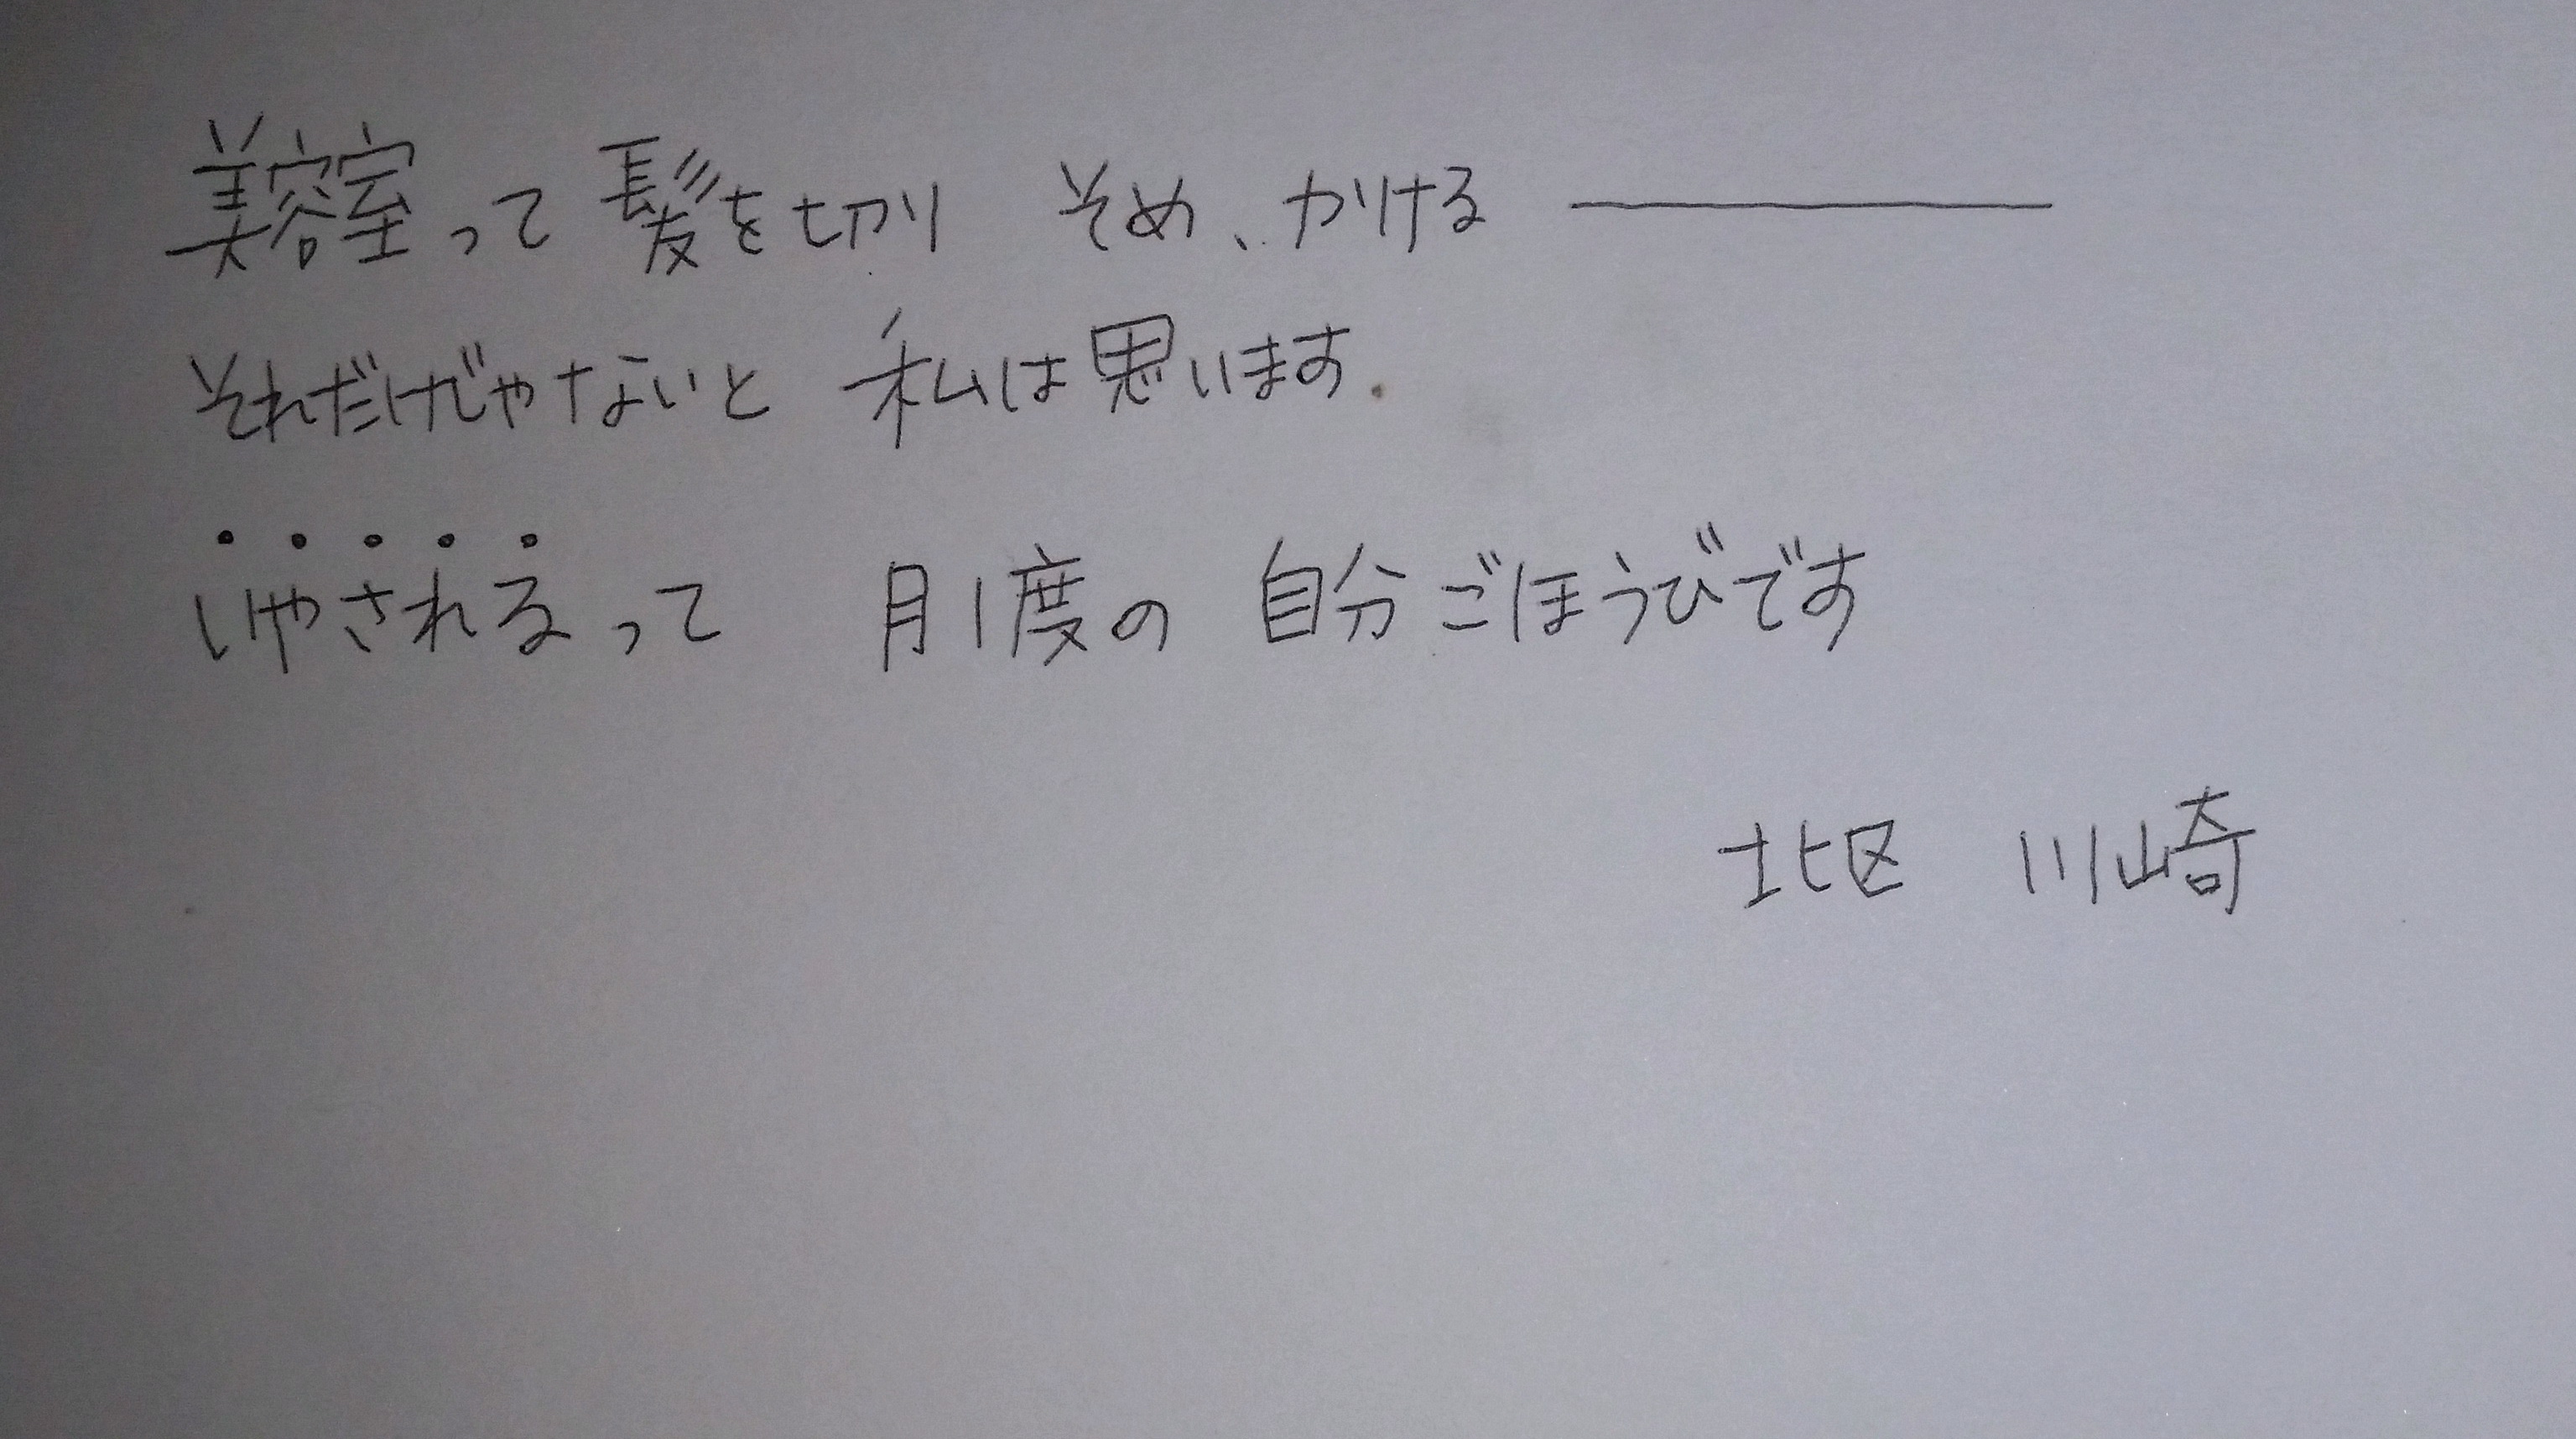 美容室って 髪を切り そめ、かける ———
それだけじゃないと 私は思います.
いやされるって 月1度の 自分ごほうびです
北区 川崎